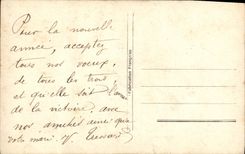 Pour la nouvelle
année, acceptez
tous nos voeux,
de tous les trois
et qu'elle soit l'année
de la victoire, avec
nos amitiés ainsi qu'à
votre mari.
Fabrication Française